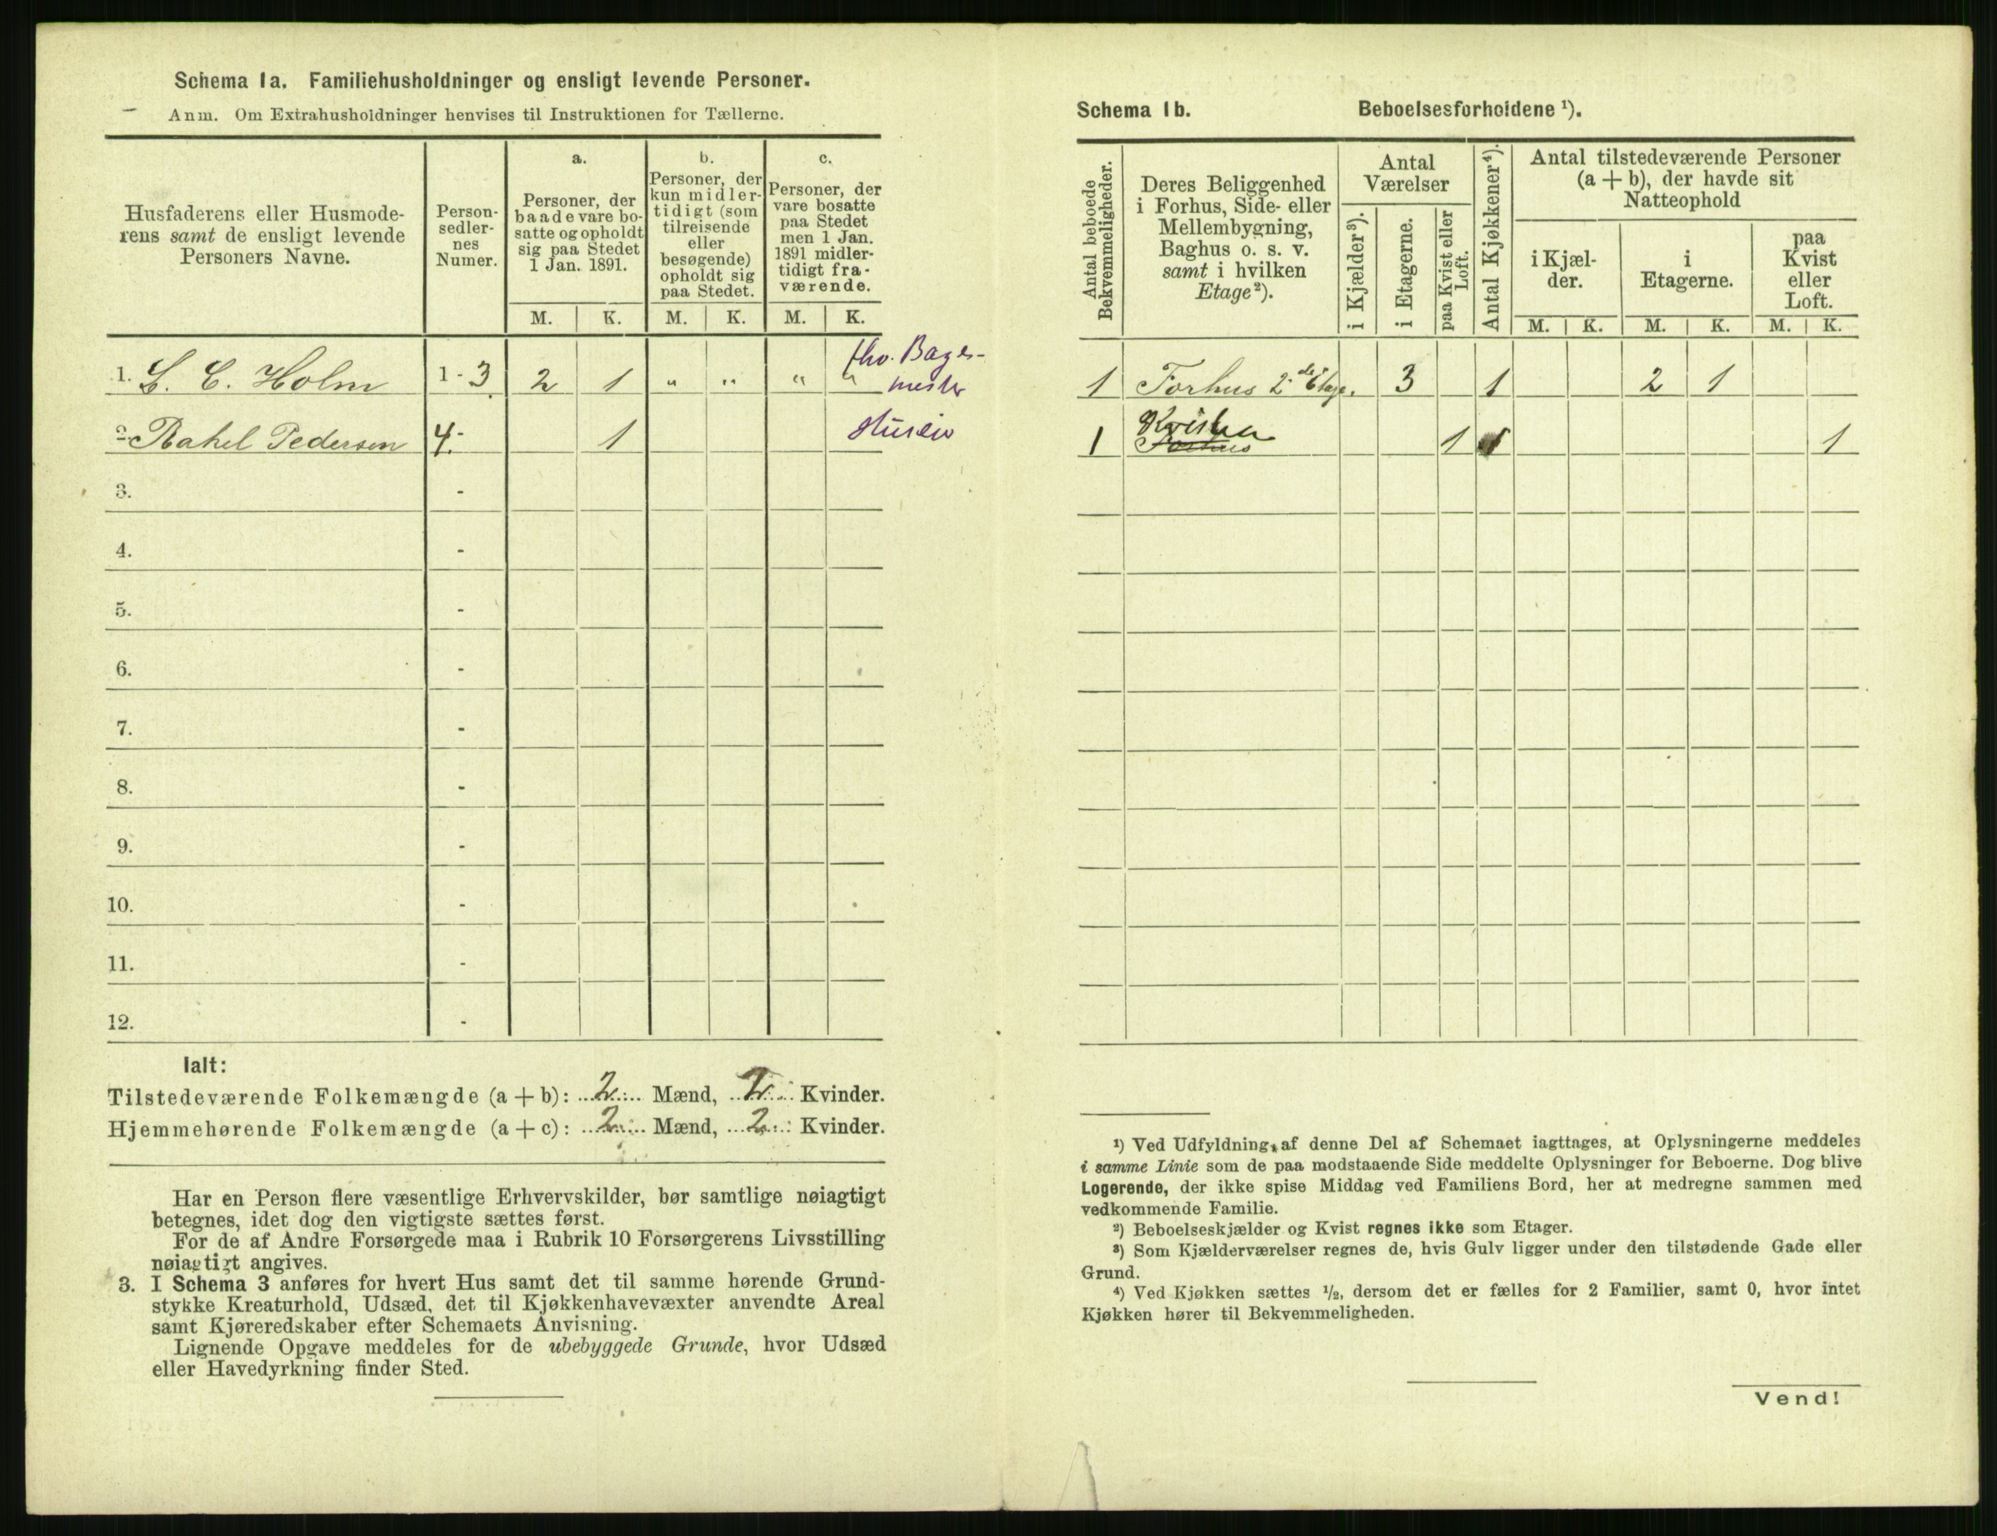 Schema 1a. Familiehusholdninger og ensligt levende Personer.
Anm. Om Extrahusholdninger henvises til Instruktionen for Tællerne.
Husfaderens eller Husmode-
rens samt de ensligt levende
Personers Navne.
Person-
sedler-
nes
Numer.
a.
Personer, der
baade vare bo-
satte og opholdt
sig paa Stedet
1 Jan. 1891.
b.
Personer, der
kun midler-
tidigt (som
tilreisende
eller
besøgende)
opholdt sig
paa Stedet.
c.
Personer, der
vare bosatte
paa Stedet
men 1 Jan.
1891 midler-
tidigt fra-
værende.
M. K. M. K. M. K.
1. L. C. Holm 1 - 3 2 1 " " " " fhv. Bager-
mester
2 Rahel Pedersen 4 - 1
3. -
4. -
5. -
6. -
7. -
8. -
9. -
10. -
11. -
12. -
Ialt:
Tilstedeværende Folkemængde (a + b): 2 Mænd, 2 Kvinder.
Hjemmehørende Folkemængde (a + c): 2 Mænd, 2 Kvinder.
Har en Person flere væsentlige Erhvervskilder, bør samtlige nøiagtigt
betegnes, idet dog den vigtigste sættes først.
For de af Andre Forsørgede maa i Rubrik 10 Forsørgerens Livsstilling
nøiagtigt angives.
3. I Schema 3 anføres for hvert Hus samt det til samme hørende Grund-
stykke Kreaturhold, Udsæd, det til Kjøkkenhavevæxter anvendte Areal
samt Kjøreredskaber efter Schemaets Anvisning.
Lignende Opgave meddeles for de ubebyggede Grunde, hvor Udsæd
eller Havedyrkning finder Sted.
Schema 1b. Beboelsesforholdene ¹).
Antal beboede
Bekvemmeligheder.
Deres Beliggenhed
i Forhus, Side- eller
Mellembygning,
Baghus o. s. v.
samt i hvilken
Etage²).
Antal
Værelser
i Kjælder³).
i Etagerne.
paa Kvist eller
Loft.
Antal Kjøkkener⁴).
Antal tilstedeværende Personer
(a + b), der havde sit
Natteophold
i Kjæl-
der.
i
Etagerne.
paa
Kvist
eller
Loft.
M. K. M. K. M. K.
1 Forhus 2de Etage. 3 1 2 1
1 Kvisten 1 1
Forhus
¹) Ved Udfyldning af denne Del af Schemaet iagttages, at Oplysningerne meddeles
i samme Linie som de paa modstaaende Side meddelte Oplysninger for Beboerne. Dog blive
Logerende, der ikke spise Middag ved Familiens Bord, her at medregne sammen med
vedkommende Familie.
²) Beboelseskjælder og Kvist regnes ikke som Etager.
³) Som Kjælderværelser regnes de, hvis Gulv ligger under den tilstødende Gade eller
Grund.
⁴) Ved Kjøkken sættes ½, dersom det er fælles for 2 Familier, samt 0, hvor intet
Kjøkken hører til Bekvemmeligheden.
Vend!